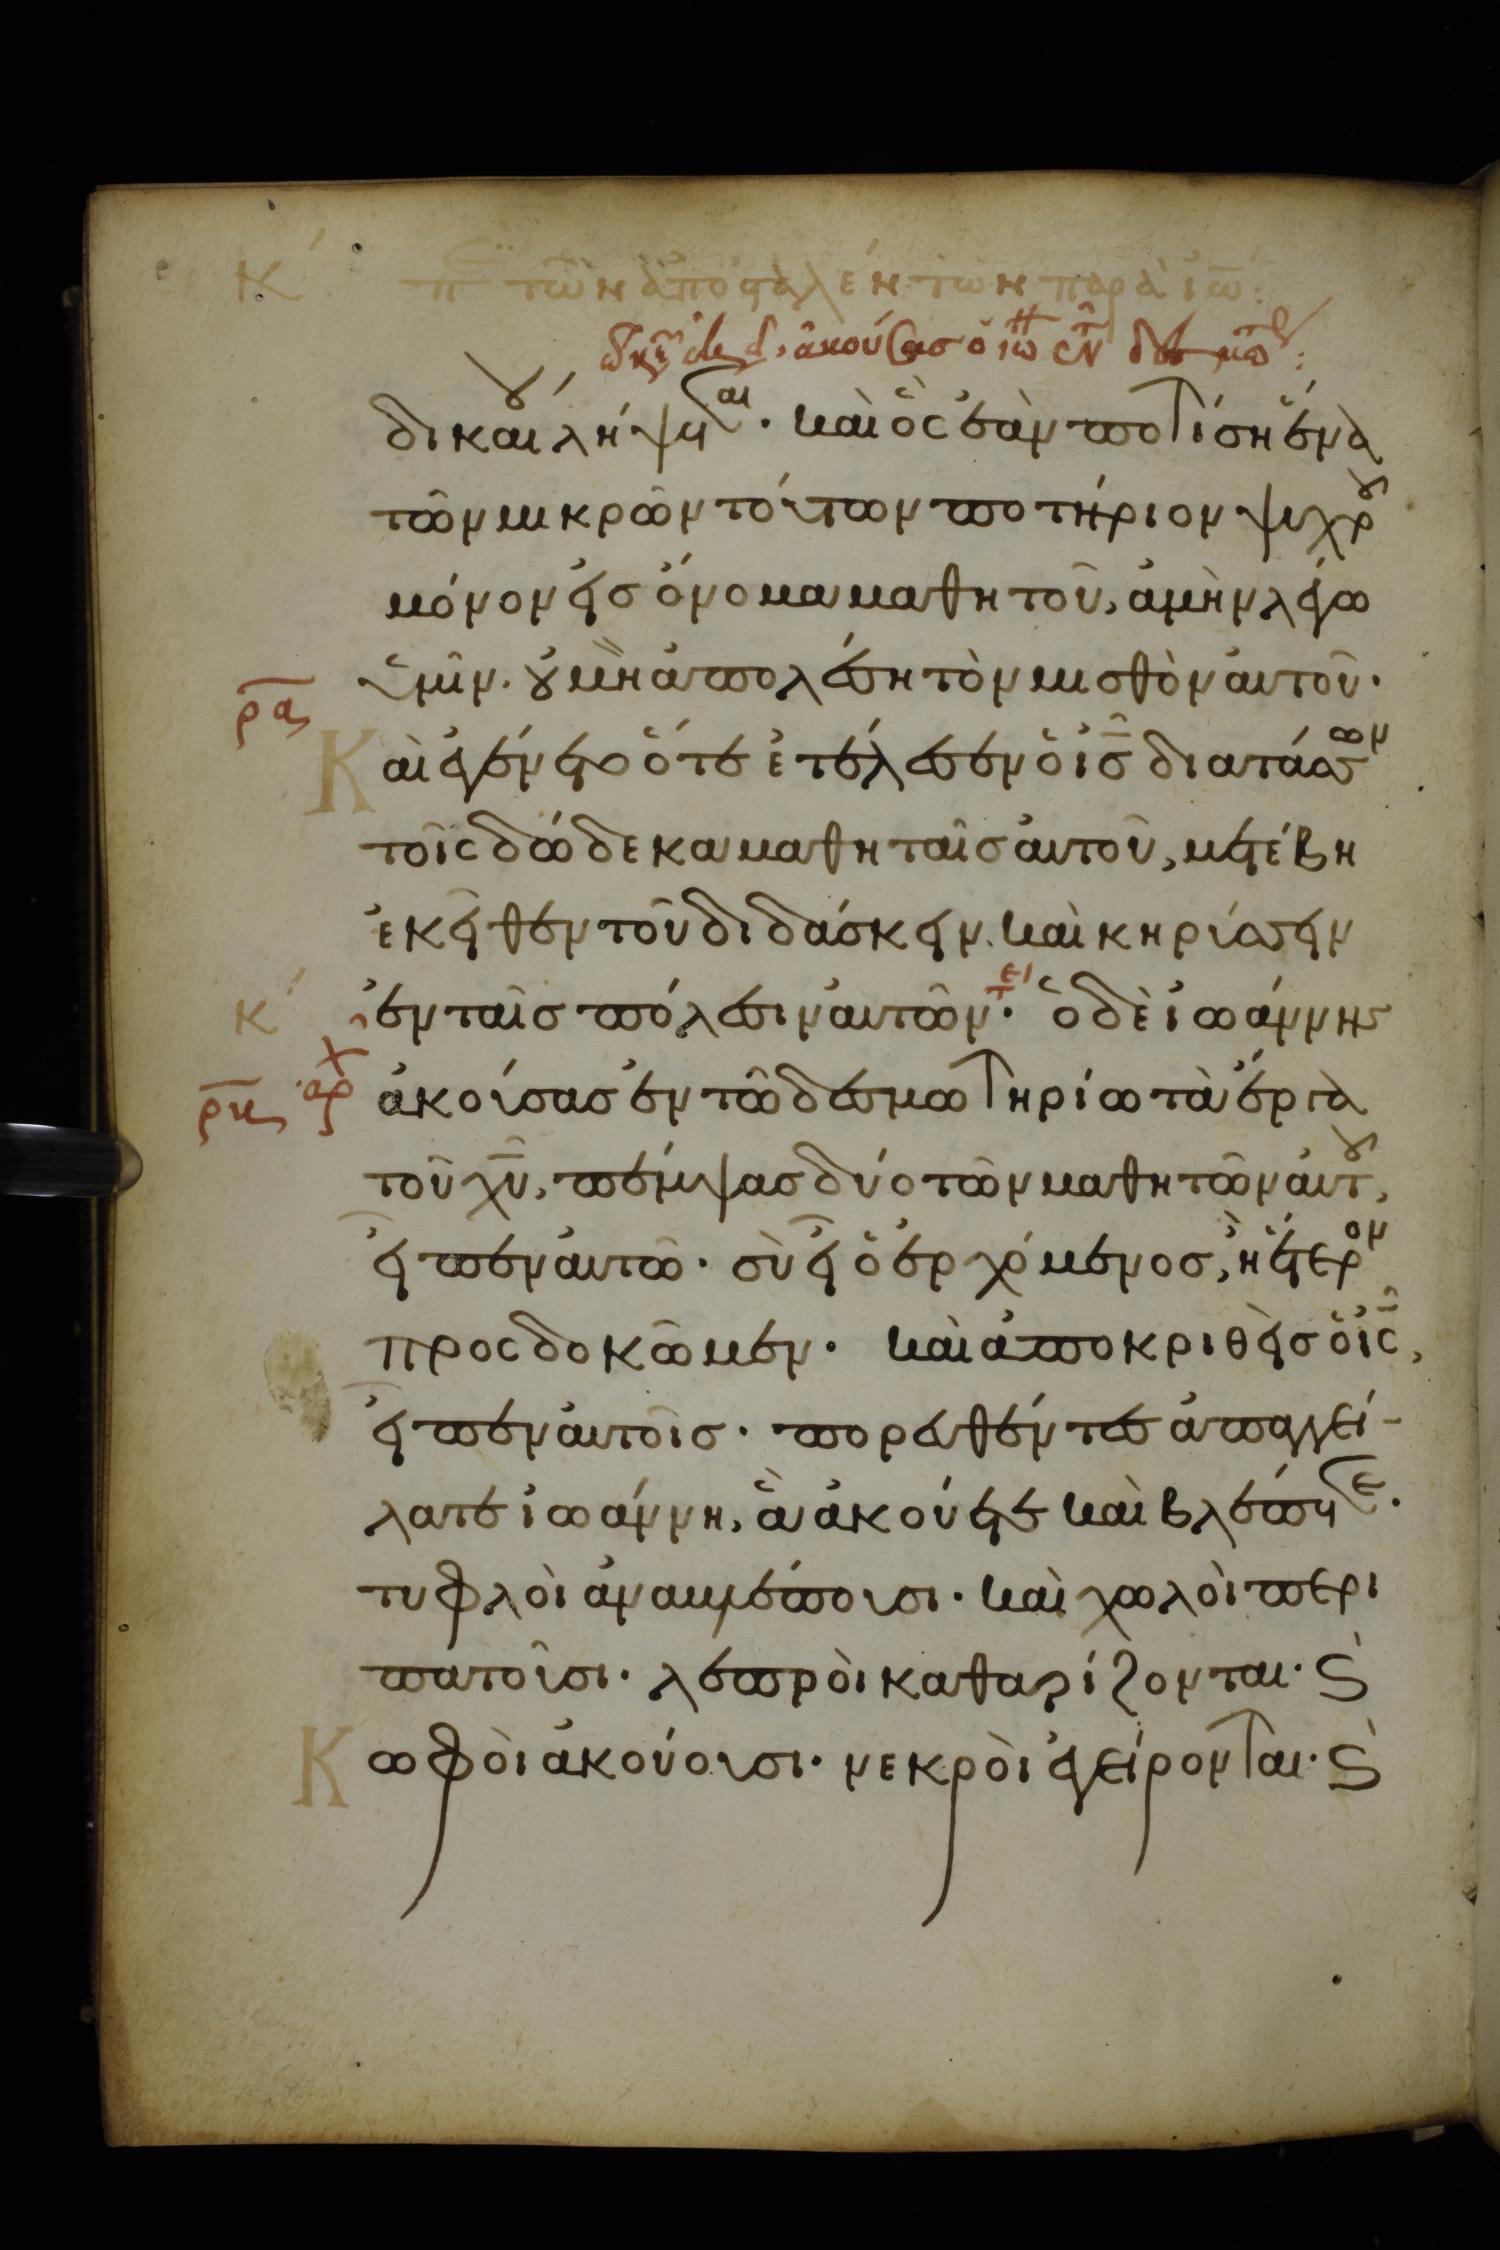 Κ´ πε τῶν ἀποσταλέντων παρὰ ἰω:
ἀκούσας ὁ ἰω
δικαίου λήψεται· καὶ ὃς ἐὰν ποτίσῃ ἕνα
τῶν μικρῶν τούτων ποτήριον ψυχροῦ
μόνον εἰς ὄνομα μαθητοῦ, ἀμὴν λέγω
ὑμῖν. οὐ μὴ ἀπολέσῃ τὸν μισθὸν αὐτοῦ·
ρα
Καὶ ἐγένετο ὅτε ἐτέλεσεν ὁ ις διατάσσων
τοῖς δώδεκα μαθηταῖς αὐτοῦ, μετέβη
ἐκεῖθεν τοῦ διδάσκειν καὶ κηρύσσειν
Κ´ ἐν ταῖς πόλεσιν αὐτῶν· ὁ δὲ ἰωάννης
αρχ ἀκούσας ἐν τῷ δεσμωτηρίῳ τὰ ἔργα
τοῦ χυ, πέμψας δύο τῶν μαθητῶν αὐτοῦ,
εἶπεν αὐτῷ· σὺ εἶ ὁ ἐρχόμενος, ἢ ἕτερον
προσδοκῶμεν· καὶ ἀποκριθεὶς ὁ ις,
εἶπεν αὐτοῖς· πορευθέντες ἀπαγγεί-
λατε ἰωάννῃ, ἃ ἀκούετε καὶ βλέπετε·
τυφλοὶ ἀναβλέπουσι· καὶ χωλοὶ περι
πατοῦσι· λεπροὶ καθαρίζονται· ϗ
Κωφοὶ ἀκούουσι· νεκροὶ ἐγείρονται· ϗ